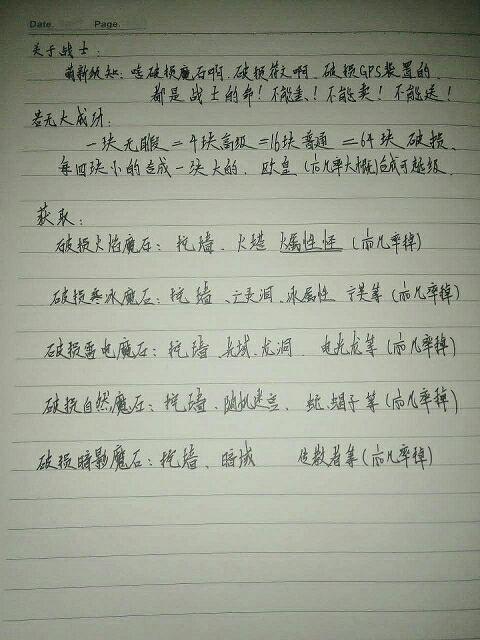 Date. Page.
关于战士:
萌新须知: 啥破损魔石啊, 破损符文啊, 破损GPS装置的,
都是战士的命! 不能丢! 不能卖! 不能送!
若无大成功:
一块无暇=4块高级=16块普通=64块破损.
每四块小的合成一块大的, 欧皇(而几率大概)合成可越级
获取:
破损火焰魔石: 挖墙、火塔 火属性怪(而几率掉)
破损寒冰魔石: 挖墙、亡灵洞、冰属性 亡灵等(而几率掉)
破损雷电魔石: 挖墙 龙域、龙洞、电光龙等(而几率掉)
破损自然魔石: 挖墙、随机迷宫、蛇、蝎子等(而几率掉)
破损暗影魔石: 挖墙、暗域 传教者等(而几率掉)